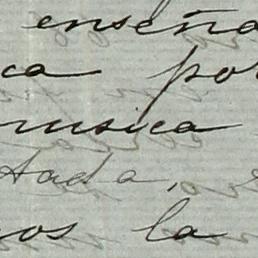 enseña
ca por
musica
tada,
os la